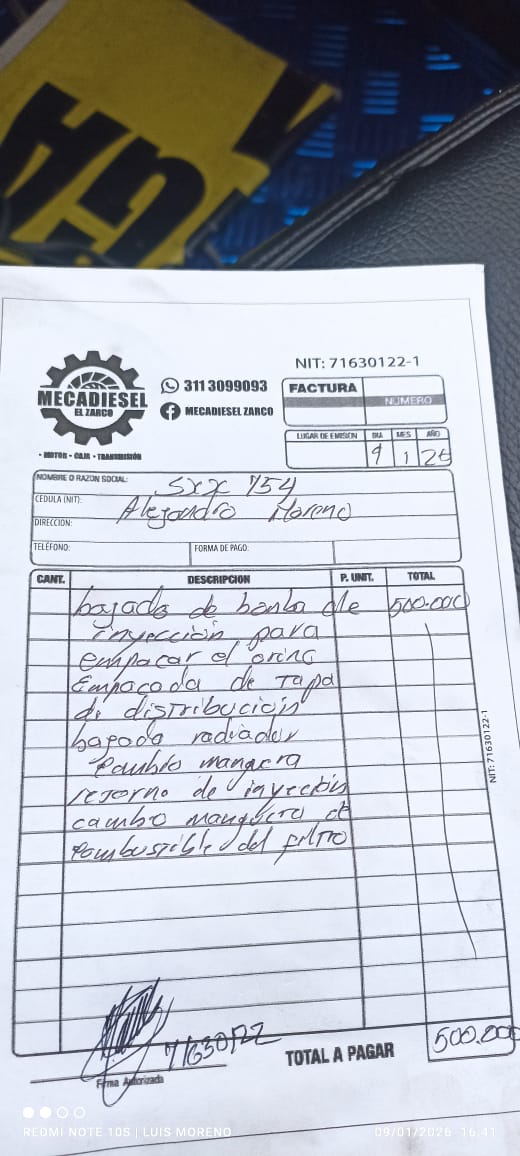 GA
NIT: 71630122-1
MECADIESEL
EL ZARCO
- MOTOR - CAJA - TRANSMISIÓN
311 3099093
MECADIESEL ZARCO
FACTURA
NÚMERO
LUGAR DE EMISIÓN DIA MES AÑO
9 1 26
NOMBRE O RAZON SOCIAL: SXX 754
CEDULA (NIT): Alejandro Moreno
DIRECCION:
TELÉFONO: FORMA DE PAGO:
CANT. DESCRIPCION P. UNIT. TOTAL
bajada de bomba de 500.000
inyección para
empacar el oring
Empacada de Tapa
de distribución
bajada radiador
Cambio manguera
retorno de inyección
cambio manguera de
combustible del filtro
NIT: 71630122-1
71630122
Firma Autorizada
TOTAL A PAGAR 500.000
REDMI NOTE 10S | LUIS MORENO
09/01/2026 16:41